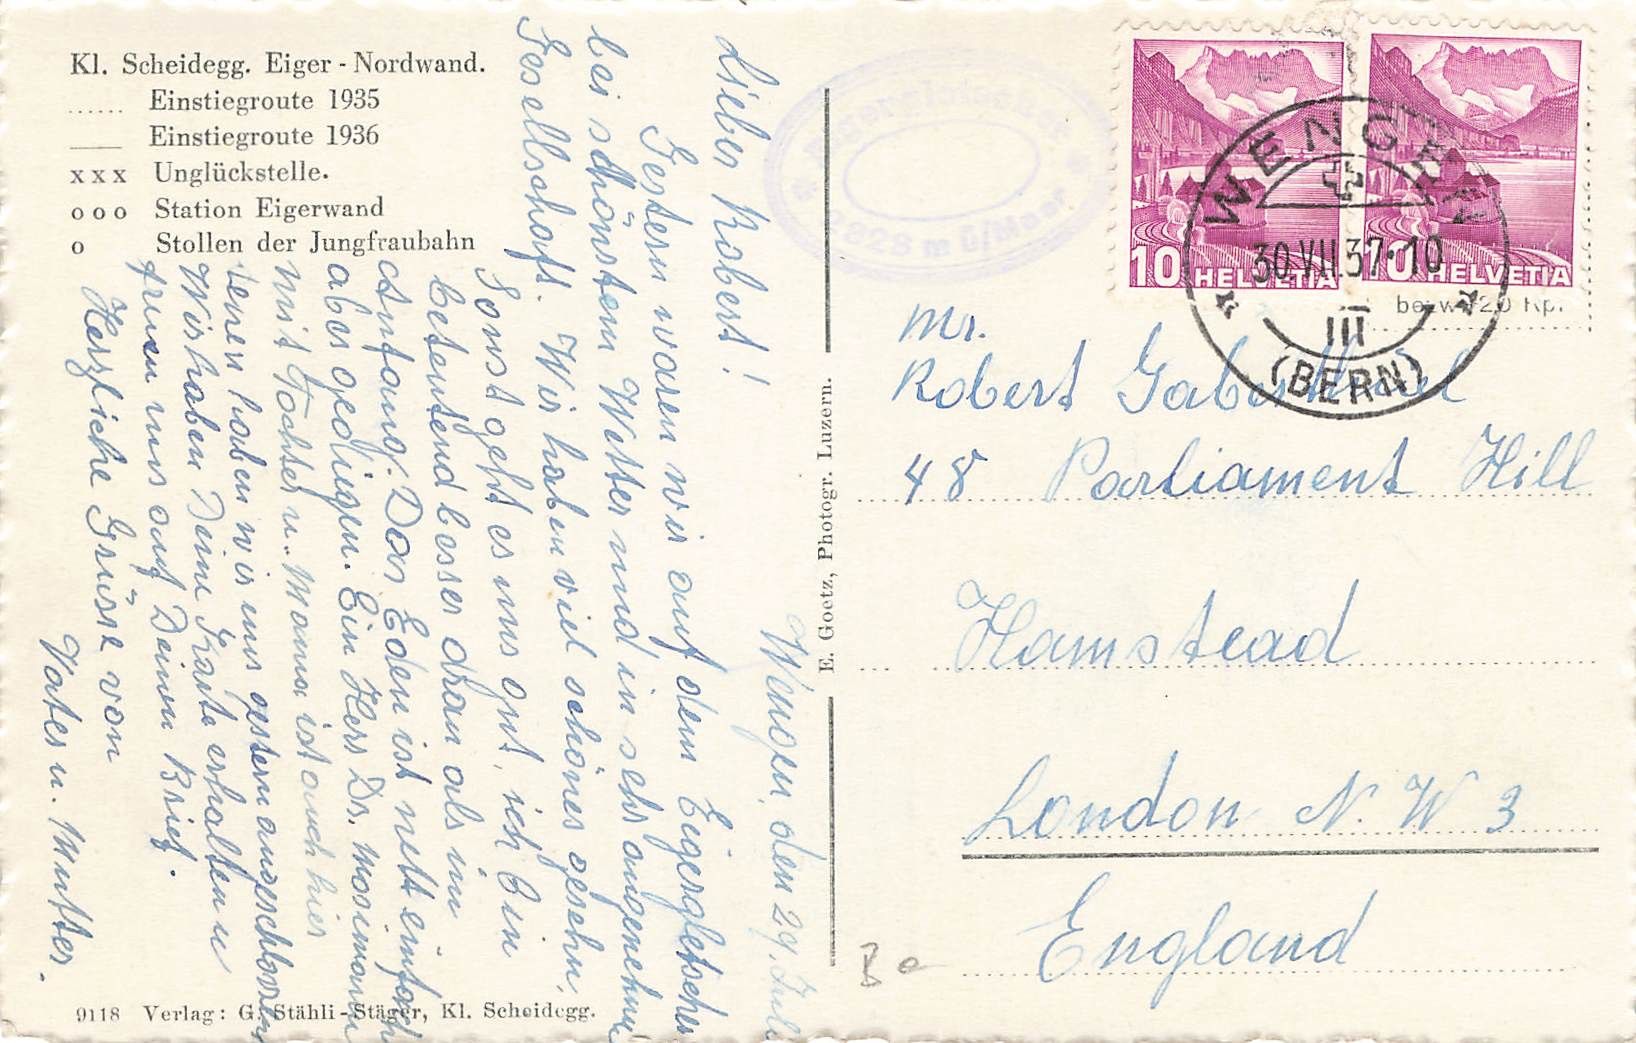 Kl. Scheidegg. Eiger - Nordwand.
...... Einstiegroute 1935
___ Einstiegroute 1936
x x x Unglückstelle.
o o o Station Eigerwand
o Stollen der Jungfraubahn
Wengen, den 29. Juli
Lieber Robert!
Gestern waren wir auf dem Eigergletscher
bei schönstem Wetter und in sehr angenehmer
Gesellschaft. Wir haben viel schönes gesehn,
Sonst geht es uns gut, ich bin
betentend besser dran als im
Anfang. Das Eden ist nett einfach
aber gedigen. Ein Herr Dr. Mosimann
mit Tochter u. Mama ist auch hier
denen haben wir uns gestern angeschlossen
Wir haben Deine Karte erhalten u
freuen uns auf Deinen Brief.
Herzliche Grüsse von
Vater u. Mutter.
9118 Verlag: G. Stähli-Stäger, Kl. Scheidegg.
E. Goetz, Photogr. Luzern.
Eigergletscher
2328 m ü/Meer
10 HELVETIA
10 HELVETIA
WENGEN
30.VII.37.10
III
(BERN)
Mr.
Robert Gabathael
48 Parliament Hill
Hamstead
London N. W 3
England